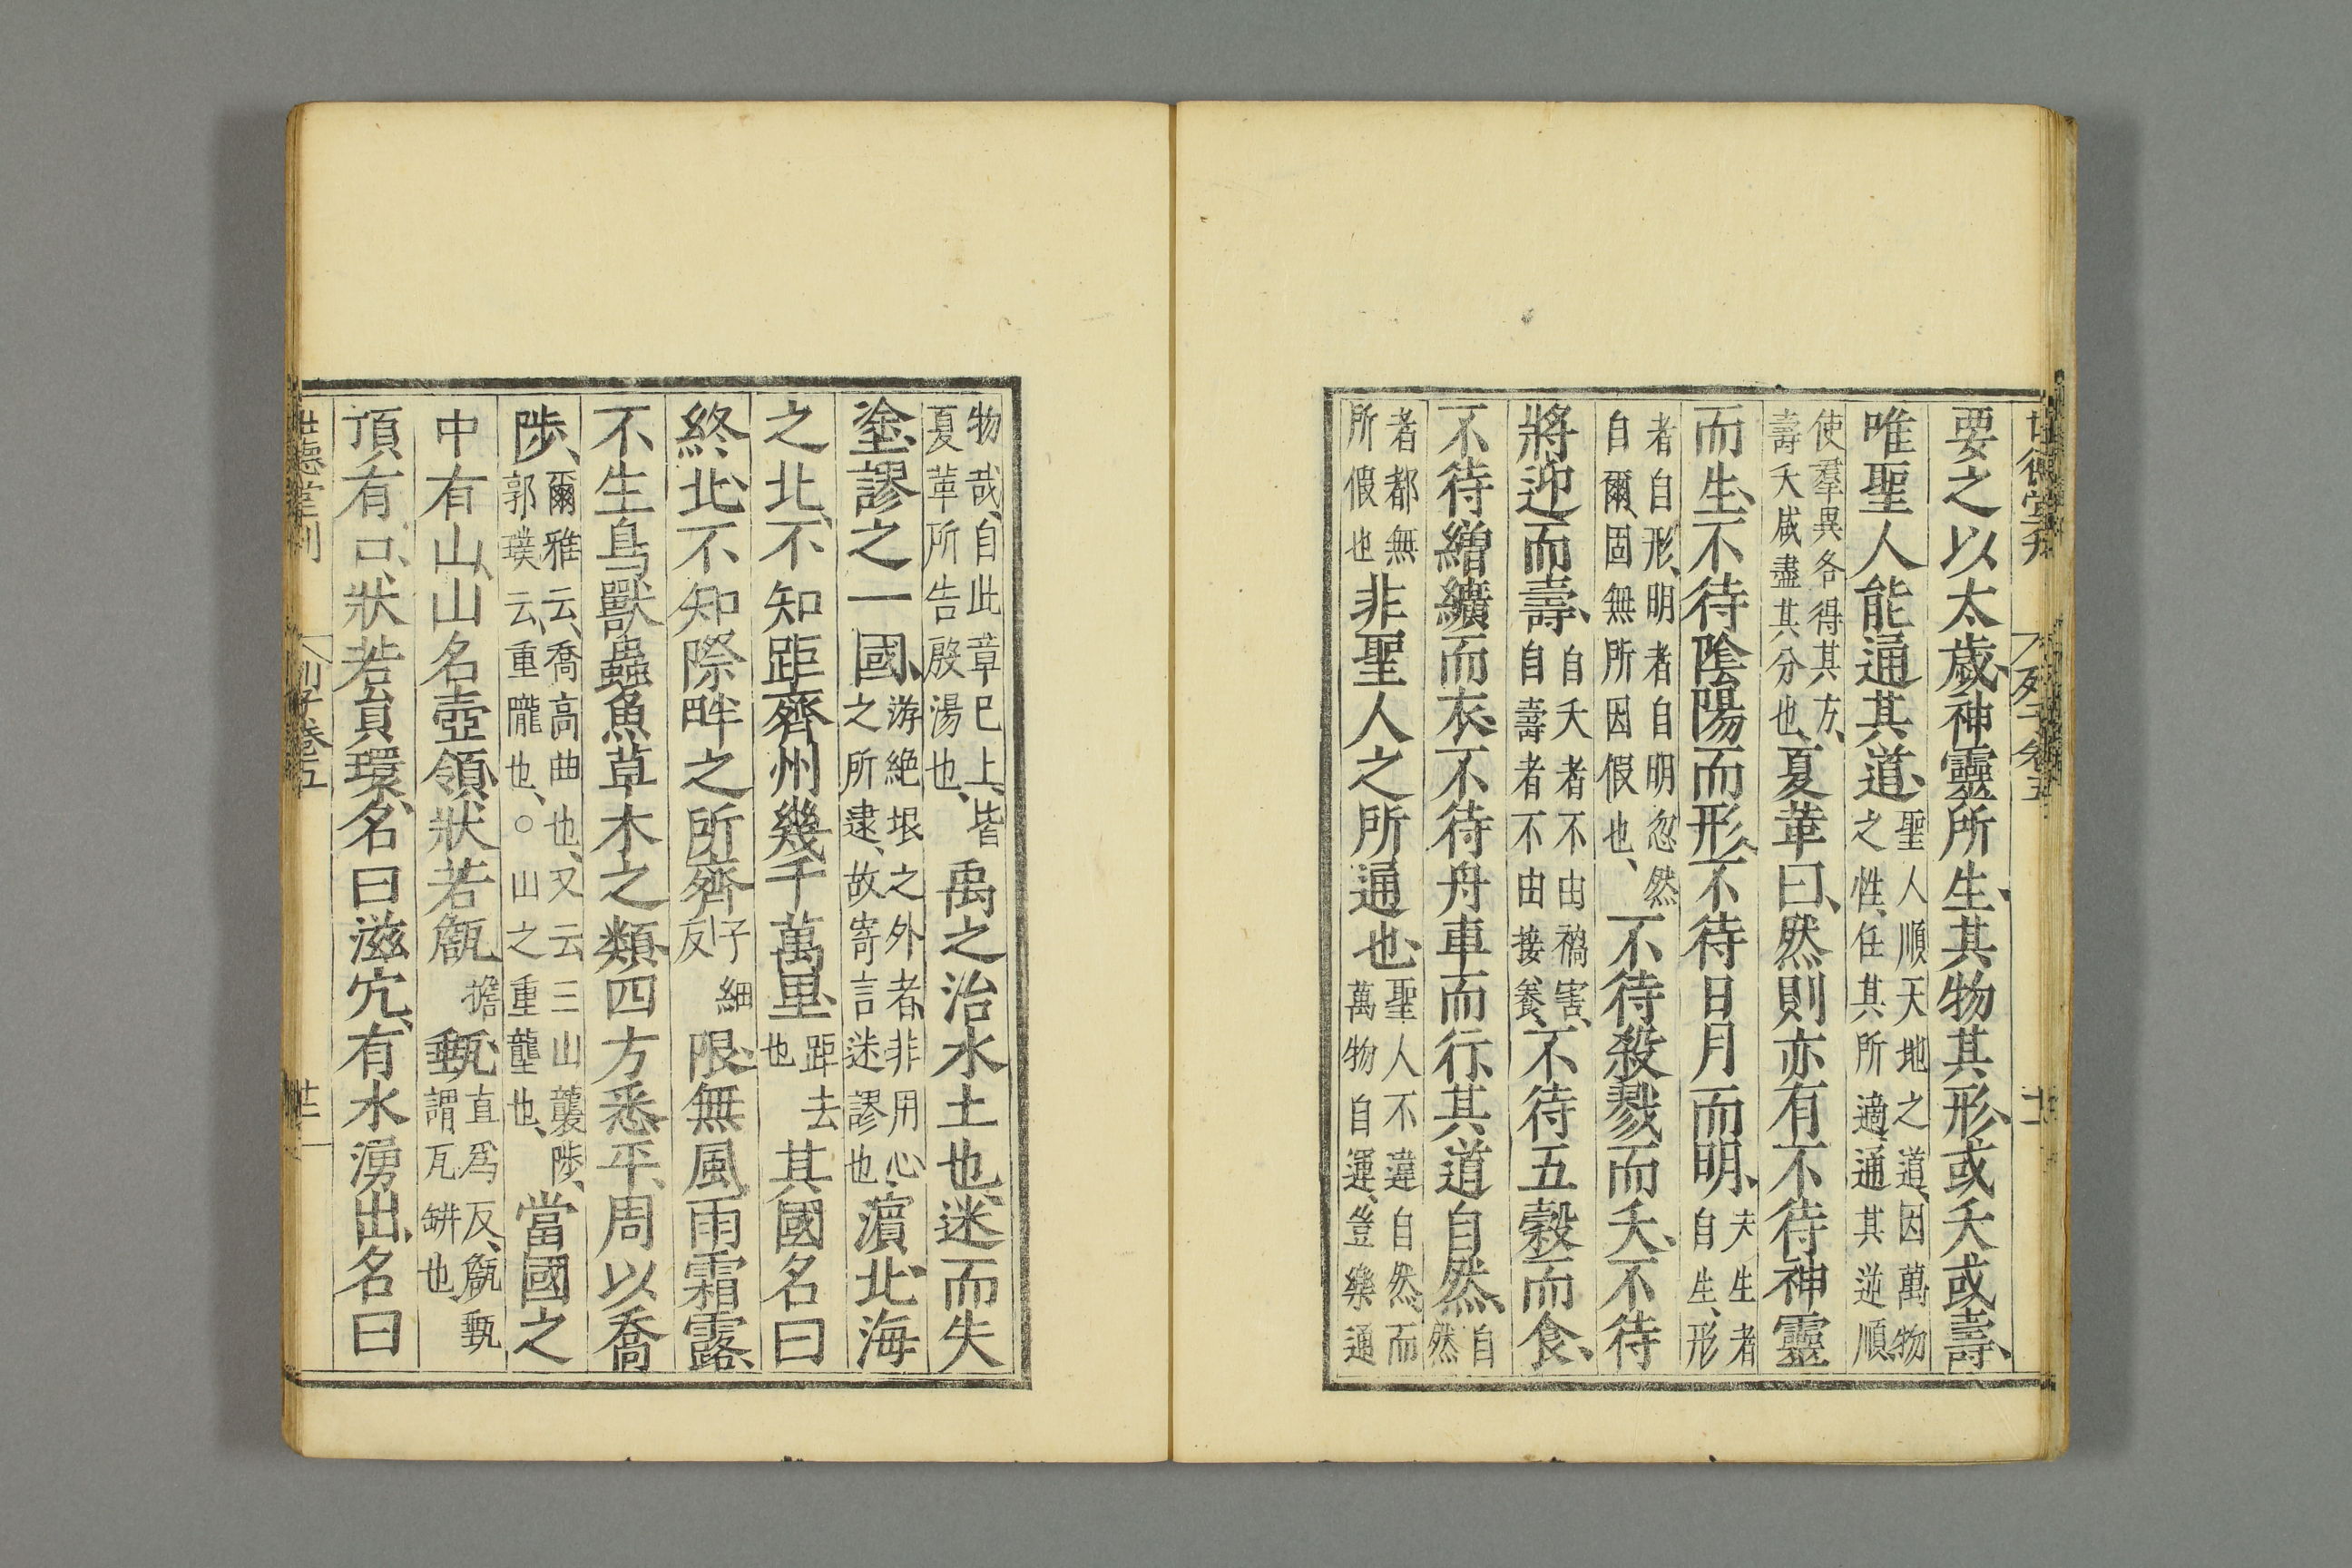 世德堂刊 列子卷五 廿一
要之以太歲、神靈所生、其物其形、或夭或壽、
唯聖人能通其道、聖人順天地之道、因萬物之性、任其所適、通其逆順
使羣異各得其方、壽夭咸盡其分也、夏革曰、然則亦有不待神靈
而生、不待陰陽而形、不待日月而明、夫生者自生、形
者自形、明者自明、忽然自爾、固無所因假也、不待殺戮而夭、不待
將迎而壽、自夭者不由禍害、自壽者不由接養、不待五穀而食、
不待繒纊而衣、不待舟車而行、其道自然、自然
者都無所假也非聖人之所通也、聖人不違自然、而萬物自運、豈樂通
物哉、自此章已上、皆夏革所告殷湯也、禹之治水土也、迷而失
塗、謬之一國、游絶垠之外者、非用心之所逮、故寄言迷謬也、濵北海
之北、不知距齊州幾千萬里、距去也其國名曰
終北、不知際畔之所齊子細反限、無風雨霜露、
不生鳥獸蟲魚草木之類、四方悉平、周以喬
陟、爾雅云、喬高曲也、又云三山襲陟、郭璞云、重隴也、○山之重壟也、當國之
中有山、山名壺領、狀若甔擔甀、直爲反、甔甀謂瓦缾也
頂有口、狀若負環、名曰滋穴、有水湧出、名曰
世德堂刊 列子卷五 廿一